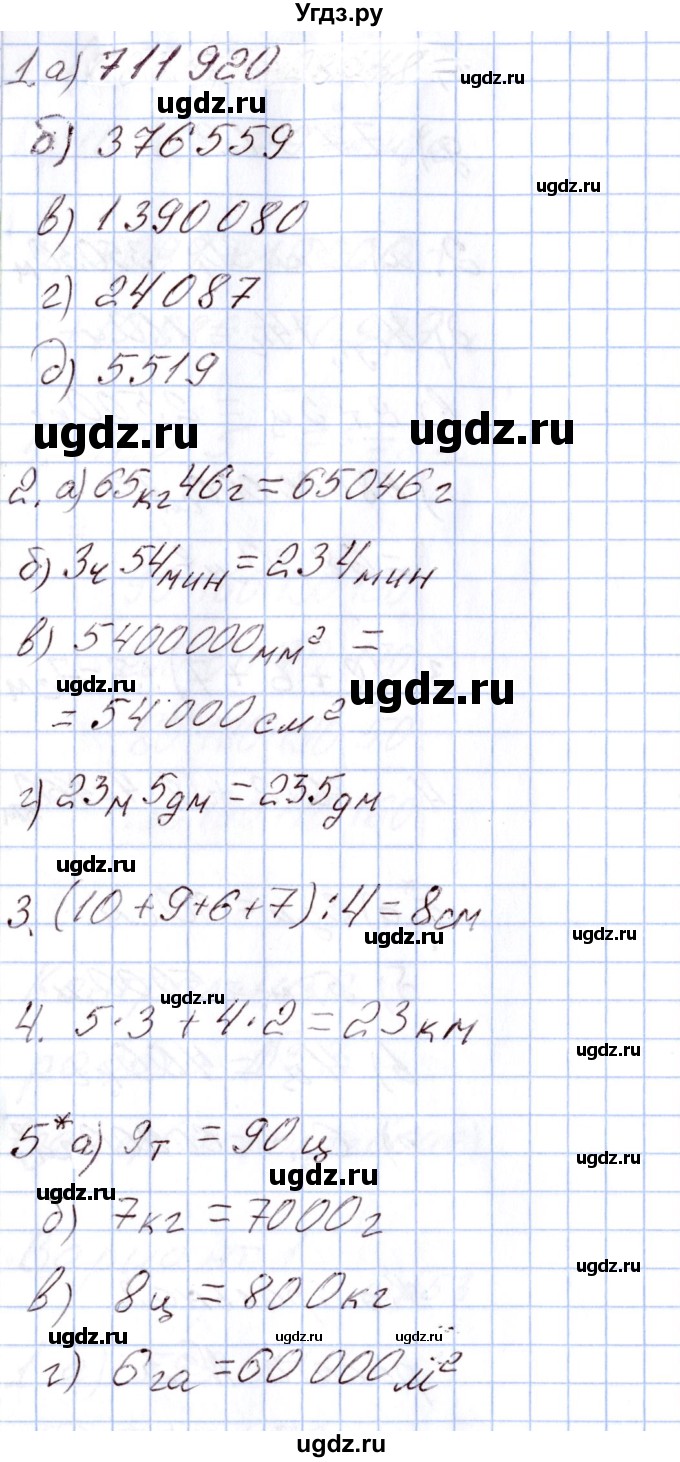 Угдз.ру
1.а) 711 920
ugdz.ru
ugdz.ru
б) 376 559
ugdz.ru
в) 1 390 080
г) 24 087
д) 5519
ugdz.ru
ugdz.ru
2. а) 65кг 46г = 65046 г
б) 3ч 54мин = 234мин
в) 5400000мм² =
ugdz.ru
ugdz.ru
= 54 000 см²
г) 23м 5дм = 235дм
ugdz.ru
3. (10+9+6+7):4=8см
ugdz.ru
ugdz.ru
ugdz.ru
4. 5·3+4·2=23км
ugdz.ru
5* а) 9т = 90ц
ugdz.ru
ugdz.ru
ugdz.ru
б) 7кг = 7000г
ugdz.ru
в) 8ц = 800кг
ugdz.ru
ugdz.ru
ugdz.ru
г) 6га = 60 000м²
ugdz.ru